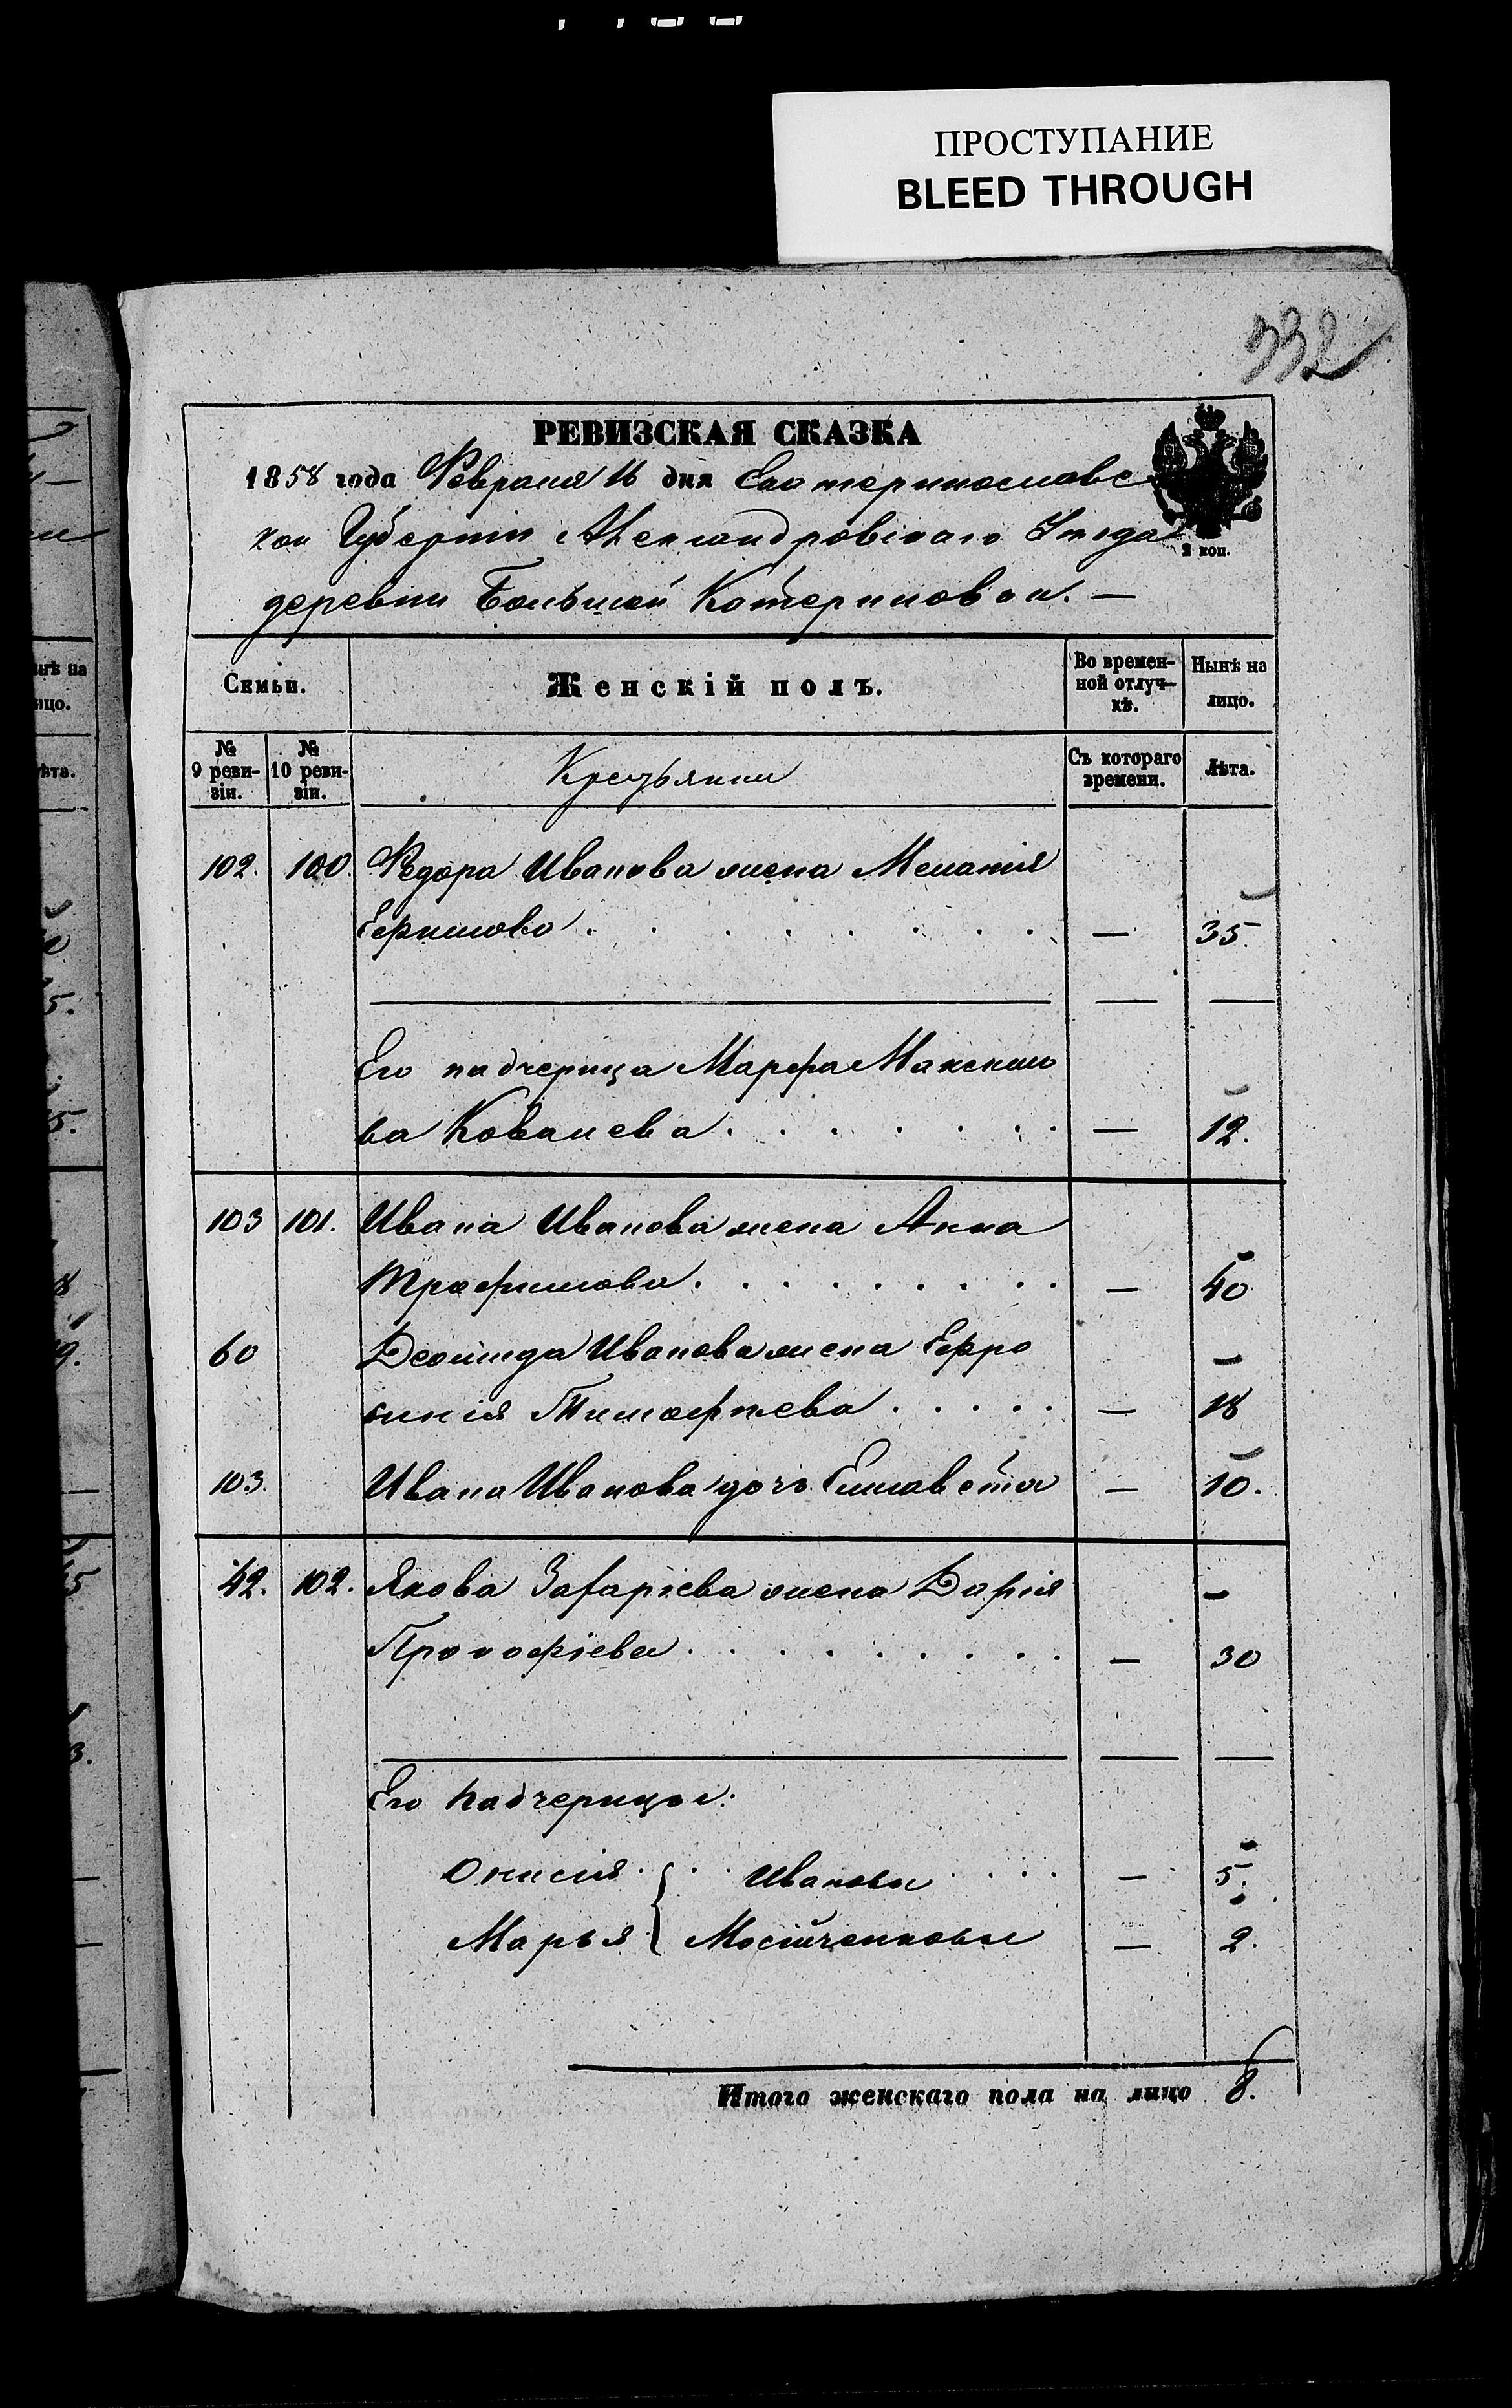 ПРОСТУПАНИЕ
BLEED THROUGH
332
РЕВИЗСКАЯ СКАЗКА
1858 года Февраля 16 дня Екатеринославс
кой Губерніи Александровскаго Уезда
2 коп.
деревни Большой Катериновки. —
Семьи. Женскій полъ. Во времен-ной отлуч-кѣ. Нынѣ на лицо.
№ 9 реви-зіи. № 10 реви-зіи. Крестьянки Съ котораго времени. Лѣта.
102. 100. Федора Иванова жена Меланія
Ефимова . . . . . . . — 35.
Его падчерица Марфа Максимо
ва Ковалева . . . . . . — 12.
103 101. Ивана Иванова жена Анна
Трофимова . . . . . . . — 40
60 Леонида Иванова жена Ефро
синія Тимофѣева . . . . . — 18
103. Ивана Иванова дочь Елисавета — 10.
42. 102. Якова Захаріева жена Дарія
Прокофіева . . . . . . . — 30
Его падчерицы:
Онисія . . . Ивановы . . . . — 5.
Марья Мостиченковы — 2.
Итого женскаго пола на лицо 8.